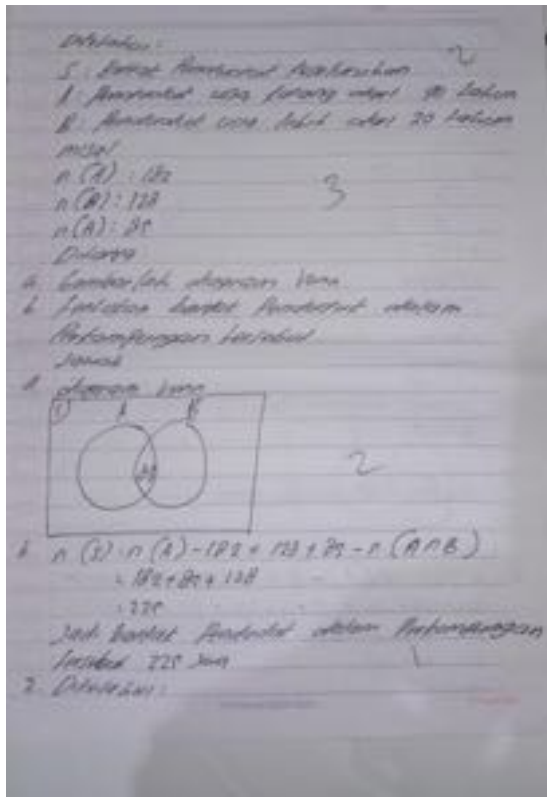 Diketahui :
S : Banyak Penduduk keseluruhan 2
A : Penduduk usia kurang dari 40 tahun
B : Penduduk usia lebih dari 20 tahun
misal
n (A) : 182
n (B) : 128 3
n (A) : 85
Ditanya
a. Gambarlah diagram Venn
b. tentukan banyak Penduduk dalam
Perkampungan tersebut
Jawab
a diagram Venn
S A B
2
b n (S) = n (A) - 182 + 128 + 85 - n (A ∩ B)
= 182 + 85 + 128
= 225
Jadi banyak Penduduk dalam Perkampungan
tersebut 225 1
2. Diketahui :